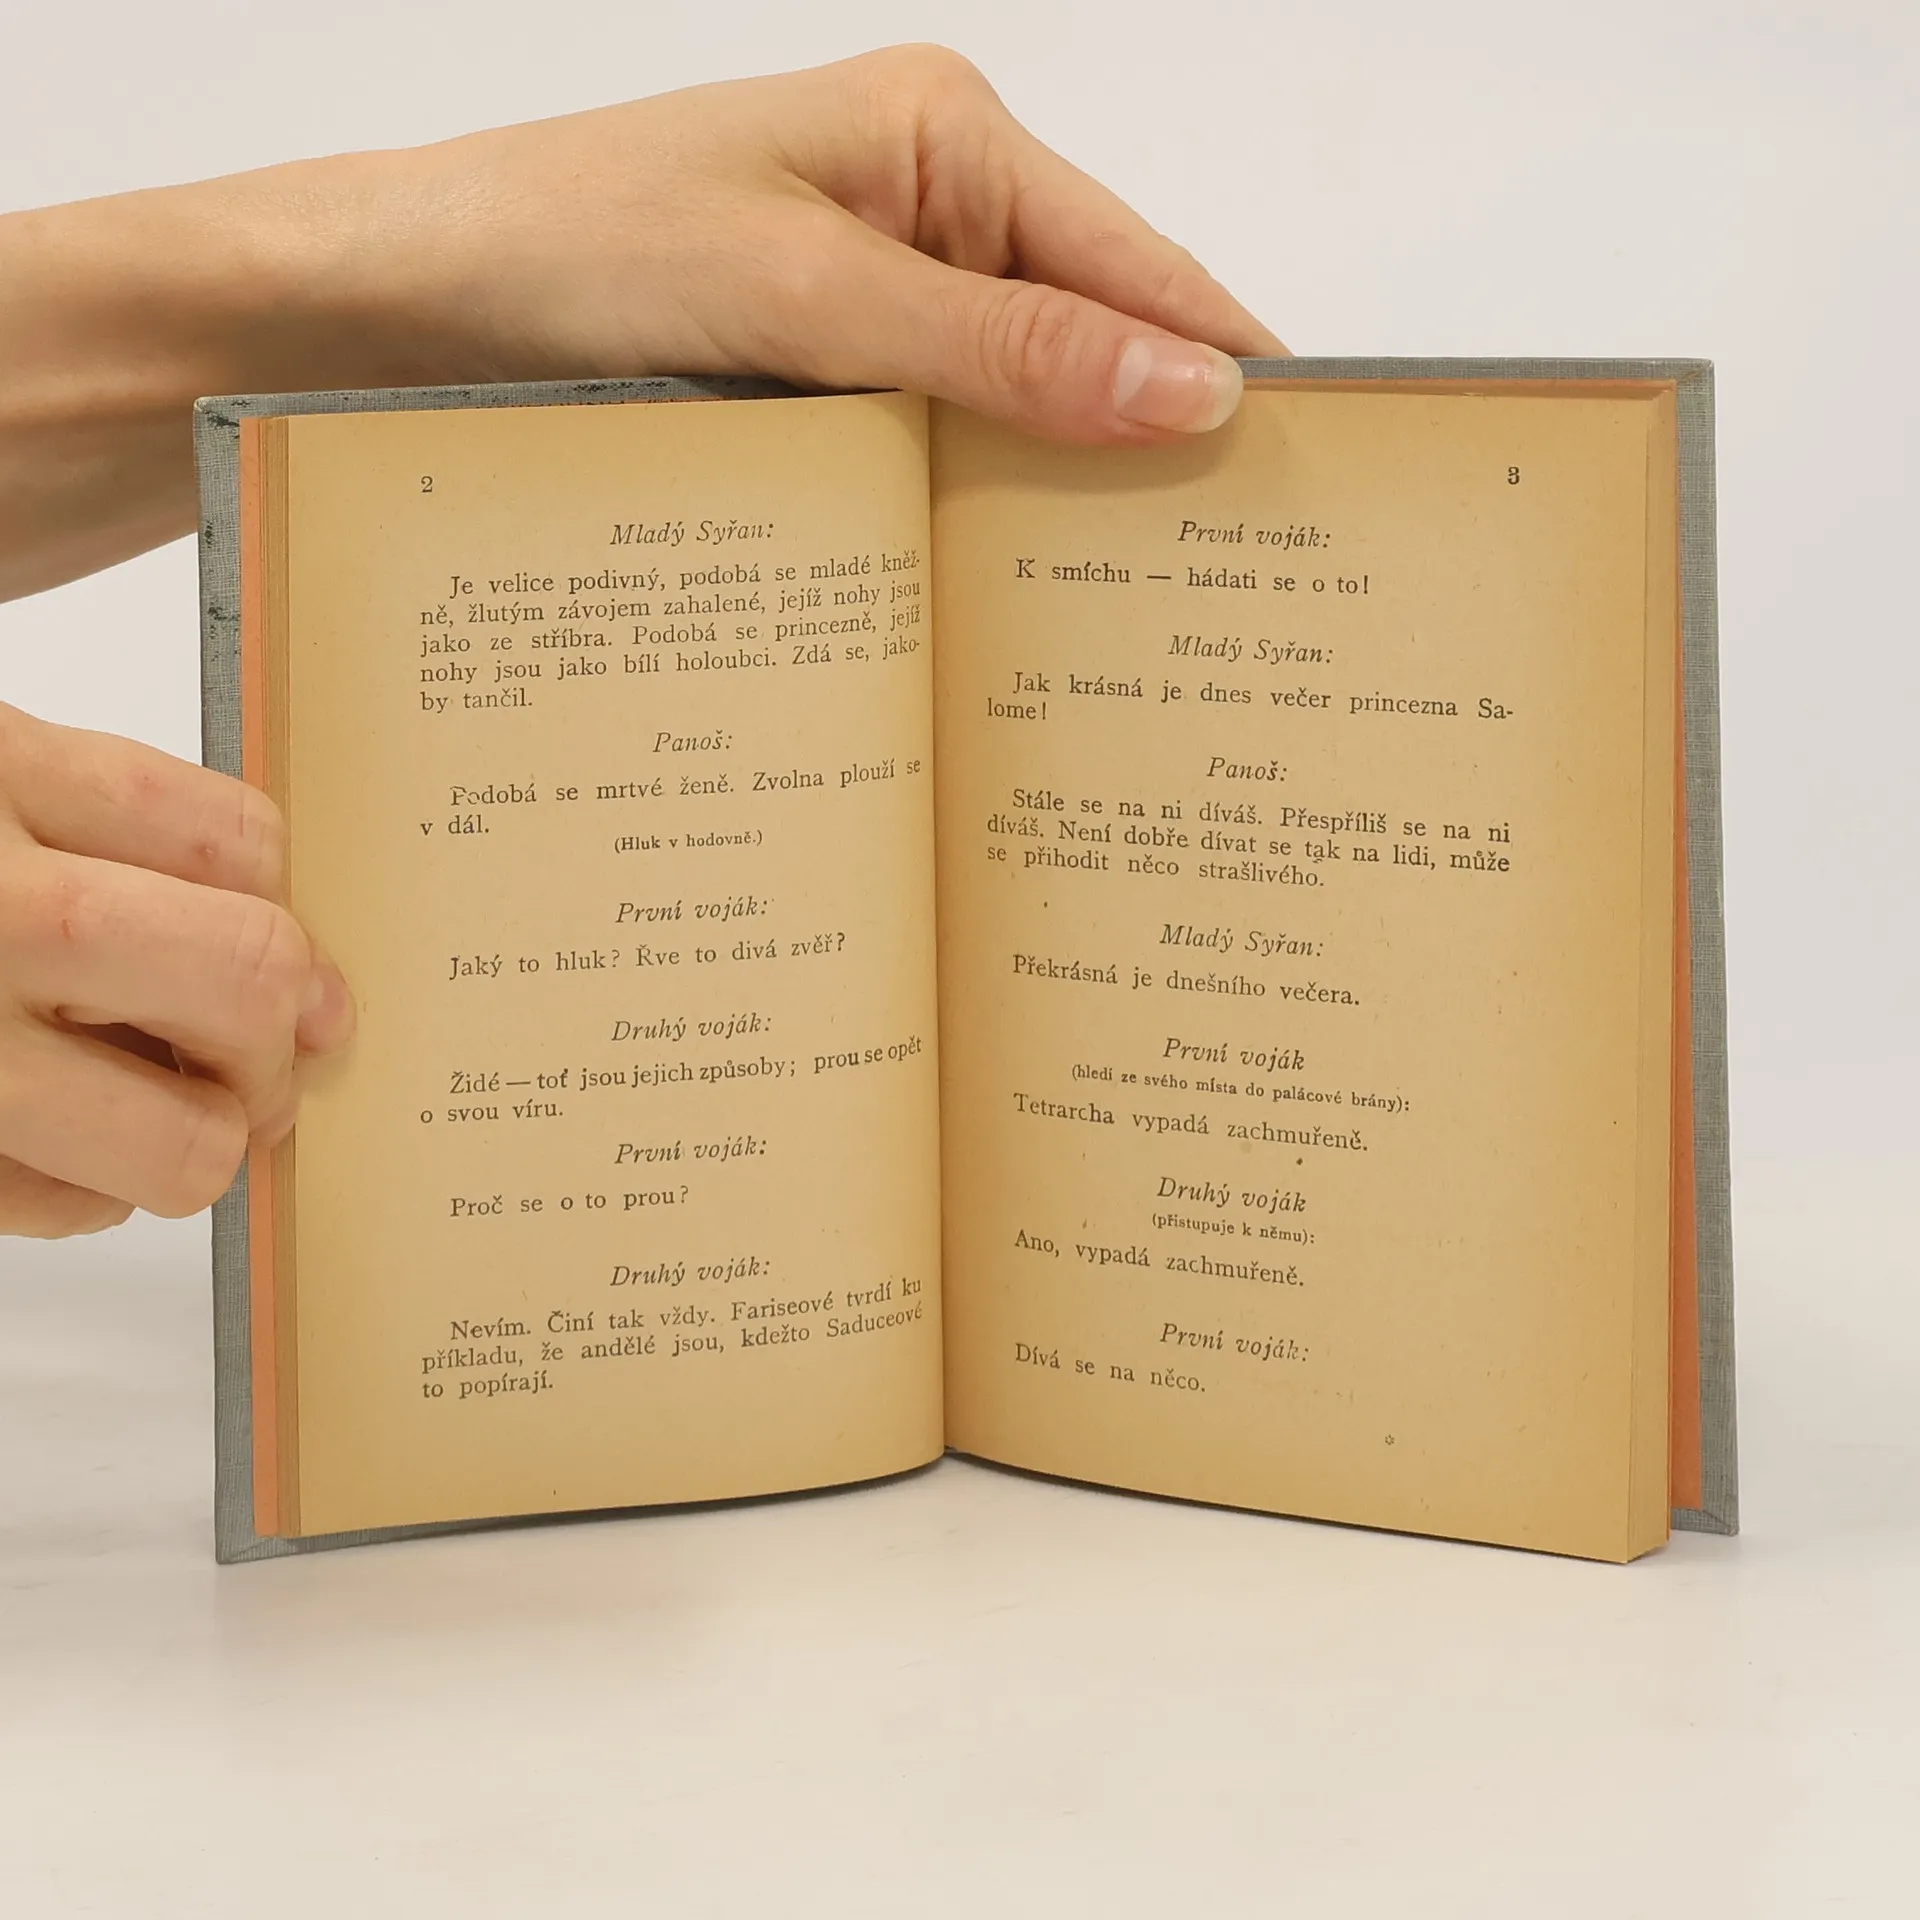 2
Mladý Syřan:
Je velice podivný, podobá se mladé kněž-
ně, žlutým závojem zahalené, jejíž nohy jsou
jako ze stříbra. Podobá se princezně, jejíž
nohy jsou jako bílí holoubci. Zdá se, jako-
by tančil.
Panoš:
Podobá se mrtvé ženě. Zvolna plouží se
v dál.
(Hluk v hodovně.)
První voják:
Jaký to hluk? Řve to divá zvěř?
Druhý voják:
Židé — toť jsou jejich způsoby; prou se opět
o svou víru.
První voják:
Proč se o to prou?
Druhý voják:
Nevím. Činí tak vždy. Fariseové tvrdí ku
příkladu, že andělé jsou, kdežto Saduceové
to popírají.
3
První voják:
K smíchu — hádati se o to!
Mladý Syřan:
Jak krásná je dnes večer princezna Sa-
lome!
Panoš:
Stále se na ni díváš. Přespříliš se na ni
díváš. Není dobře dívat se tak na lidi, může
se přihodit něco strašlivého.
Mladý Syřan:
Překrásná je dnešního večera.
První voják
(hledí ze svého místa do palácové brány):
Tetrarcha vypadá zachmuřeně.
Druhý voják
(přistupuje k němu):
Ano, vypadá zachmuřeně.
První voják:
Dívá se na něco.
*